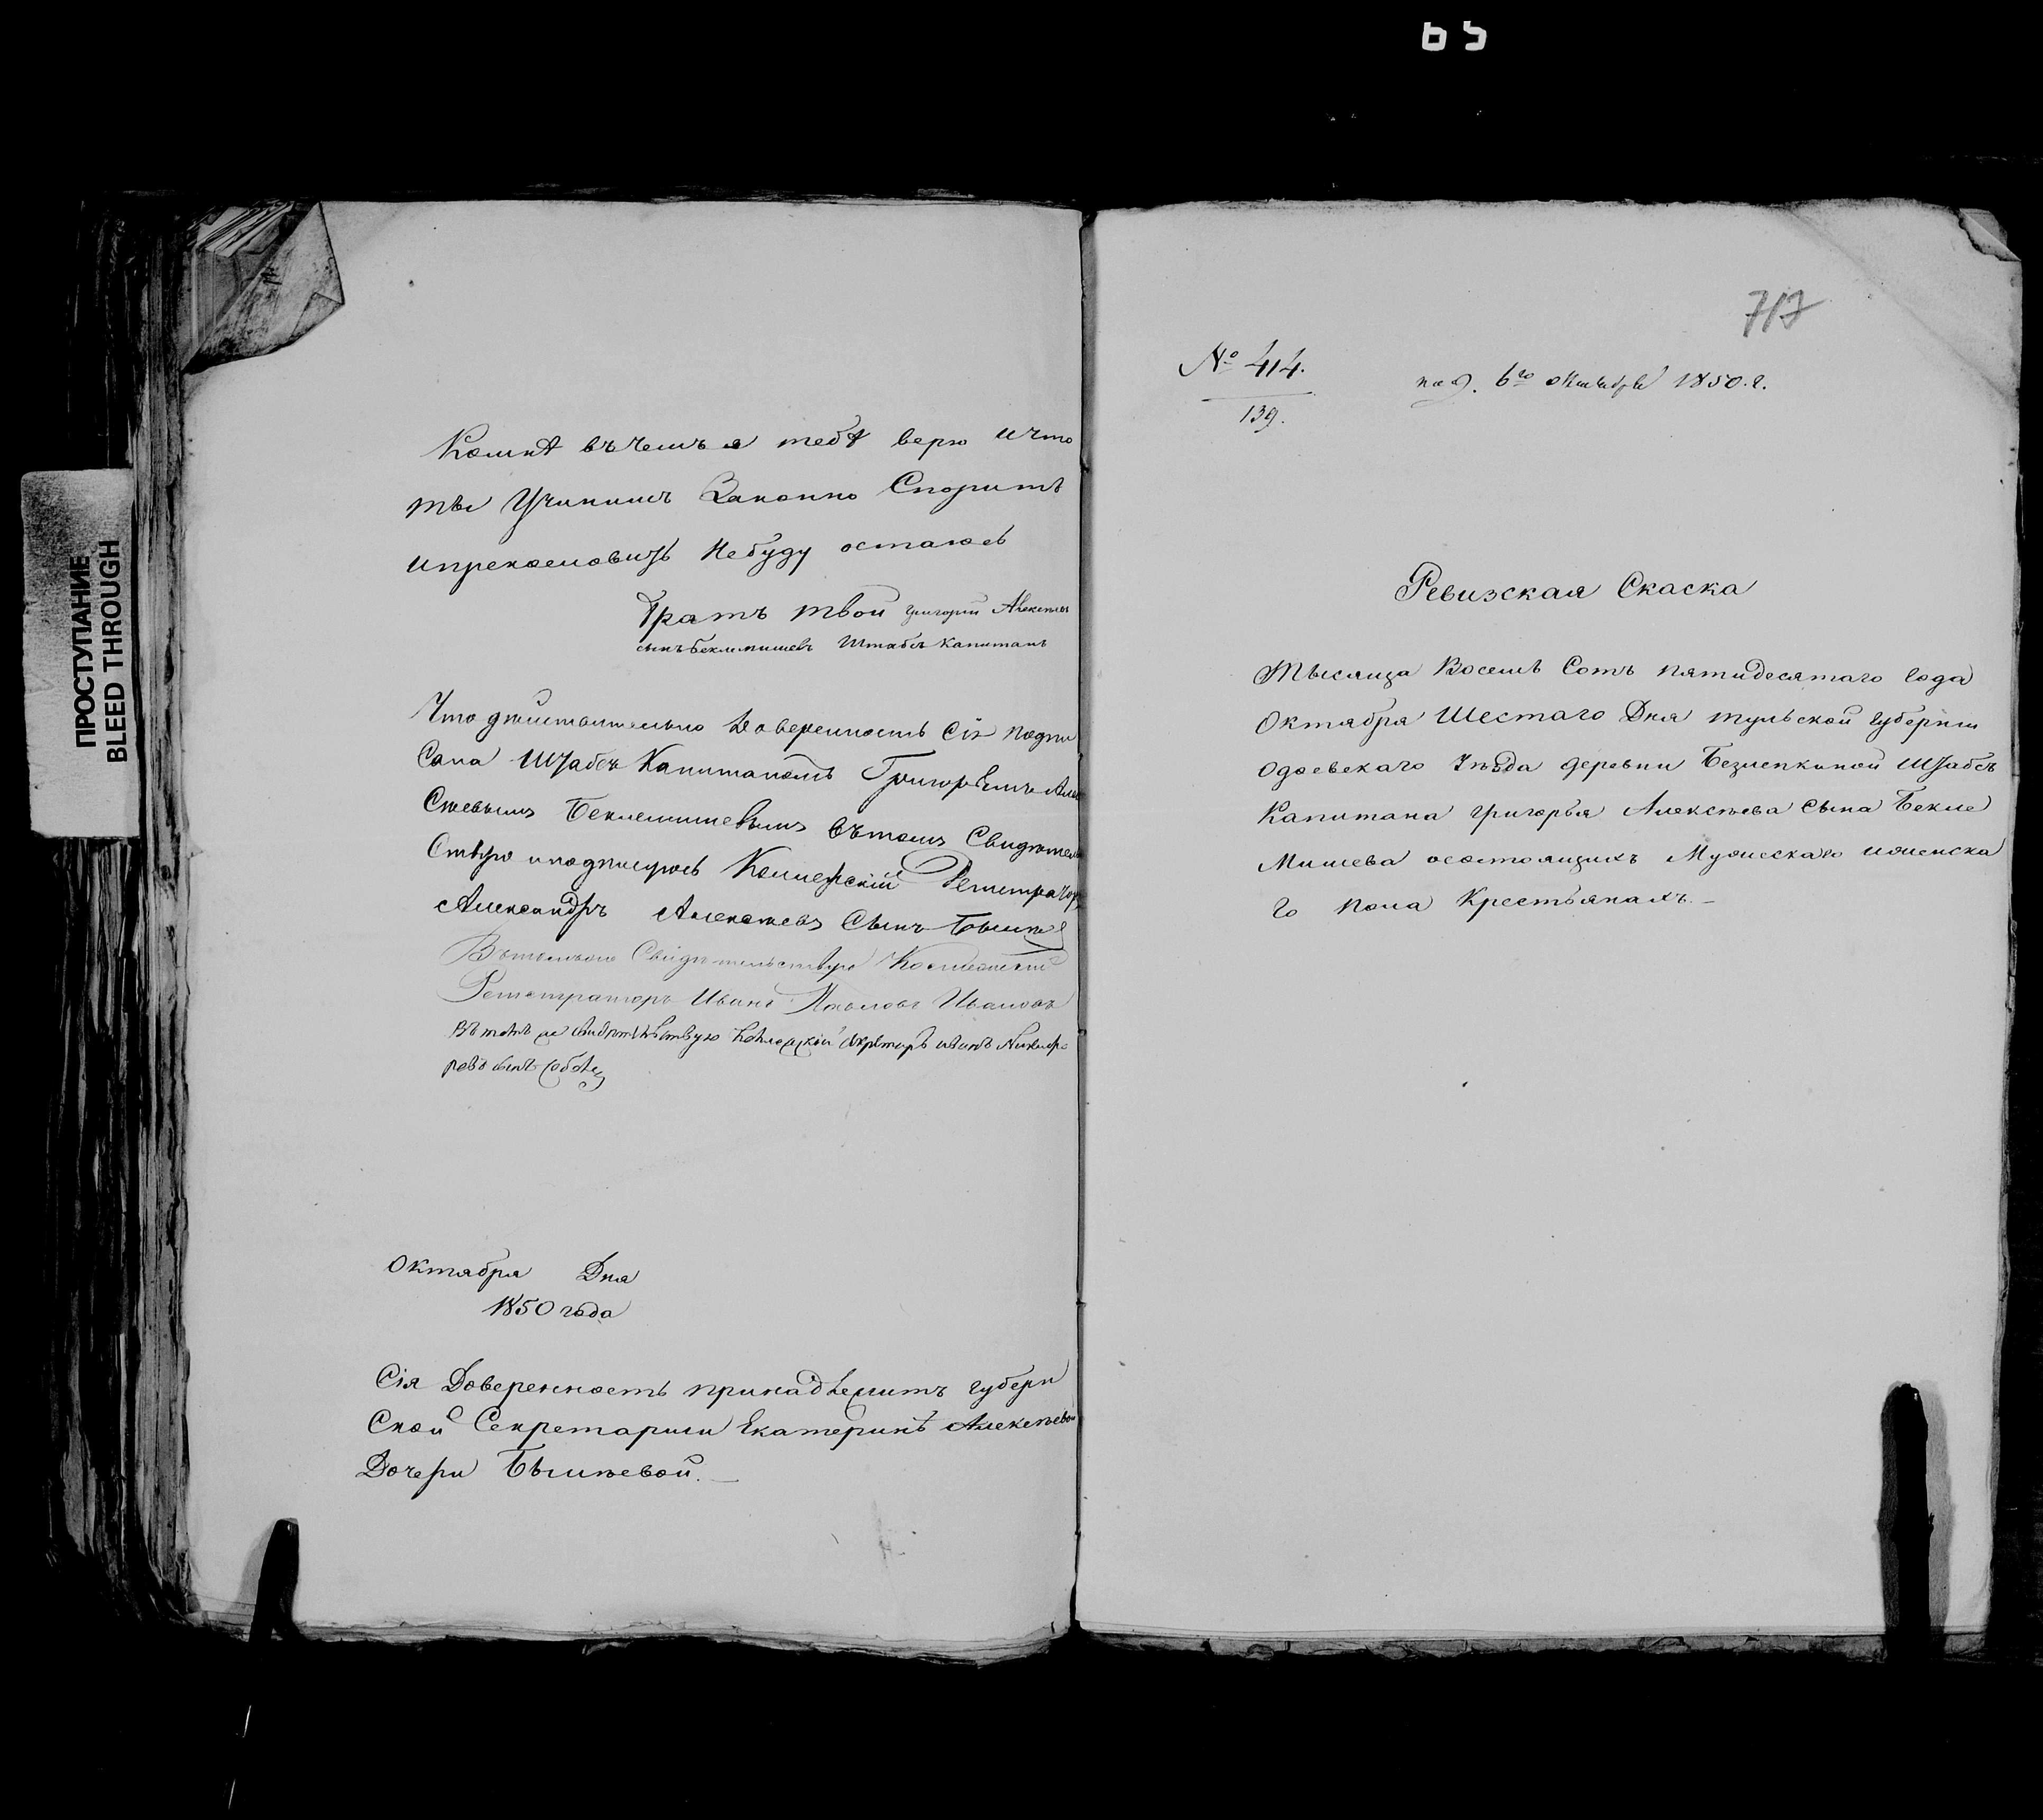 65
ПРОСТУПАНИЕ
BLEED THROUGH
въ чемъ я тебѣ верю и что
ты Учинишь Законно Споритъ
и прекословить Небуду остаюсь
братъ твой григорий Алексѣевъ
сынъ беклемишевъ Штабсъ Капитанъ
Что дѣйствительно Доверенность Сія подпи
Сана Штабсъ Капитаномъ Григорьемъ Але
Сѣевымъ Беклемишевымъ въ томъ Свидѣтель
Ствую и подписуюсь Коллежскій Регистраторъ
Александръ Алексѣевъ Сынъ
Свидѣтельствую
Регистраторъ Иванъ Ивановъ
Въ томъ же свидѣтельствую Коллежскій секретарь Никифо
ровъ сынъ
Октября Дня
1850 года
Сія Доверенность принадлежитъ губерн
Ской Секретарши Екатеринѣ Алексѣевой
Дочери
717
№ 414.
139.
под. 6го октября 1850. г.
Ревизская Скаска
Тысяща Восемь Сотъ пятидесятаго года
Октября Шестаго Дня тульской губернии
Одоевскаго Уѣзда деревни Безлепкиной Штабсъ
Капитана григорья Алексѣева Сына Бекле
Мишева осостоящихъ Мужескаго иженска
го пола Крестьянахъ.